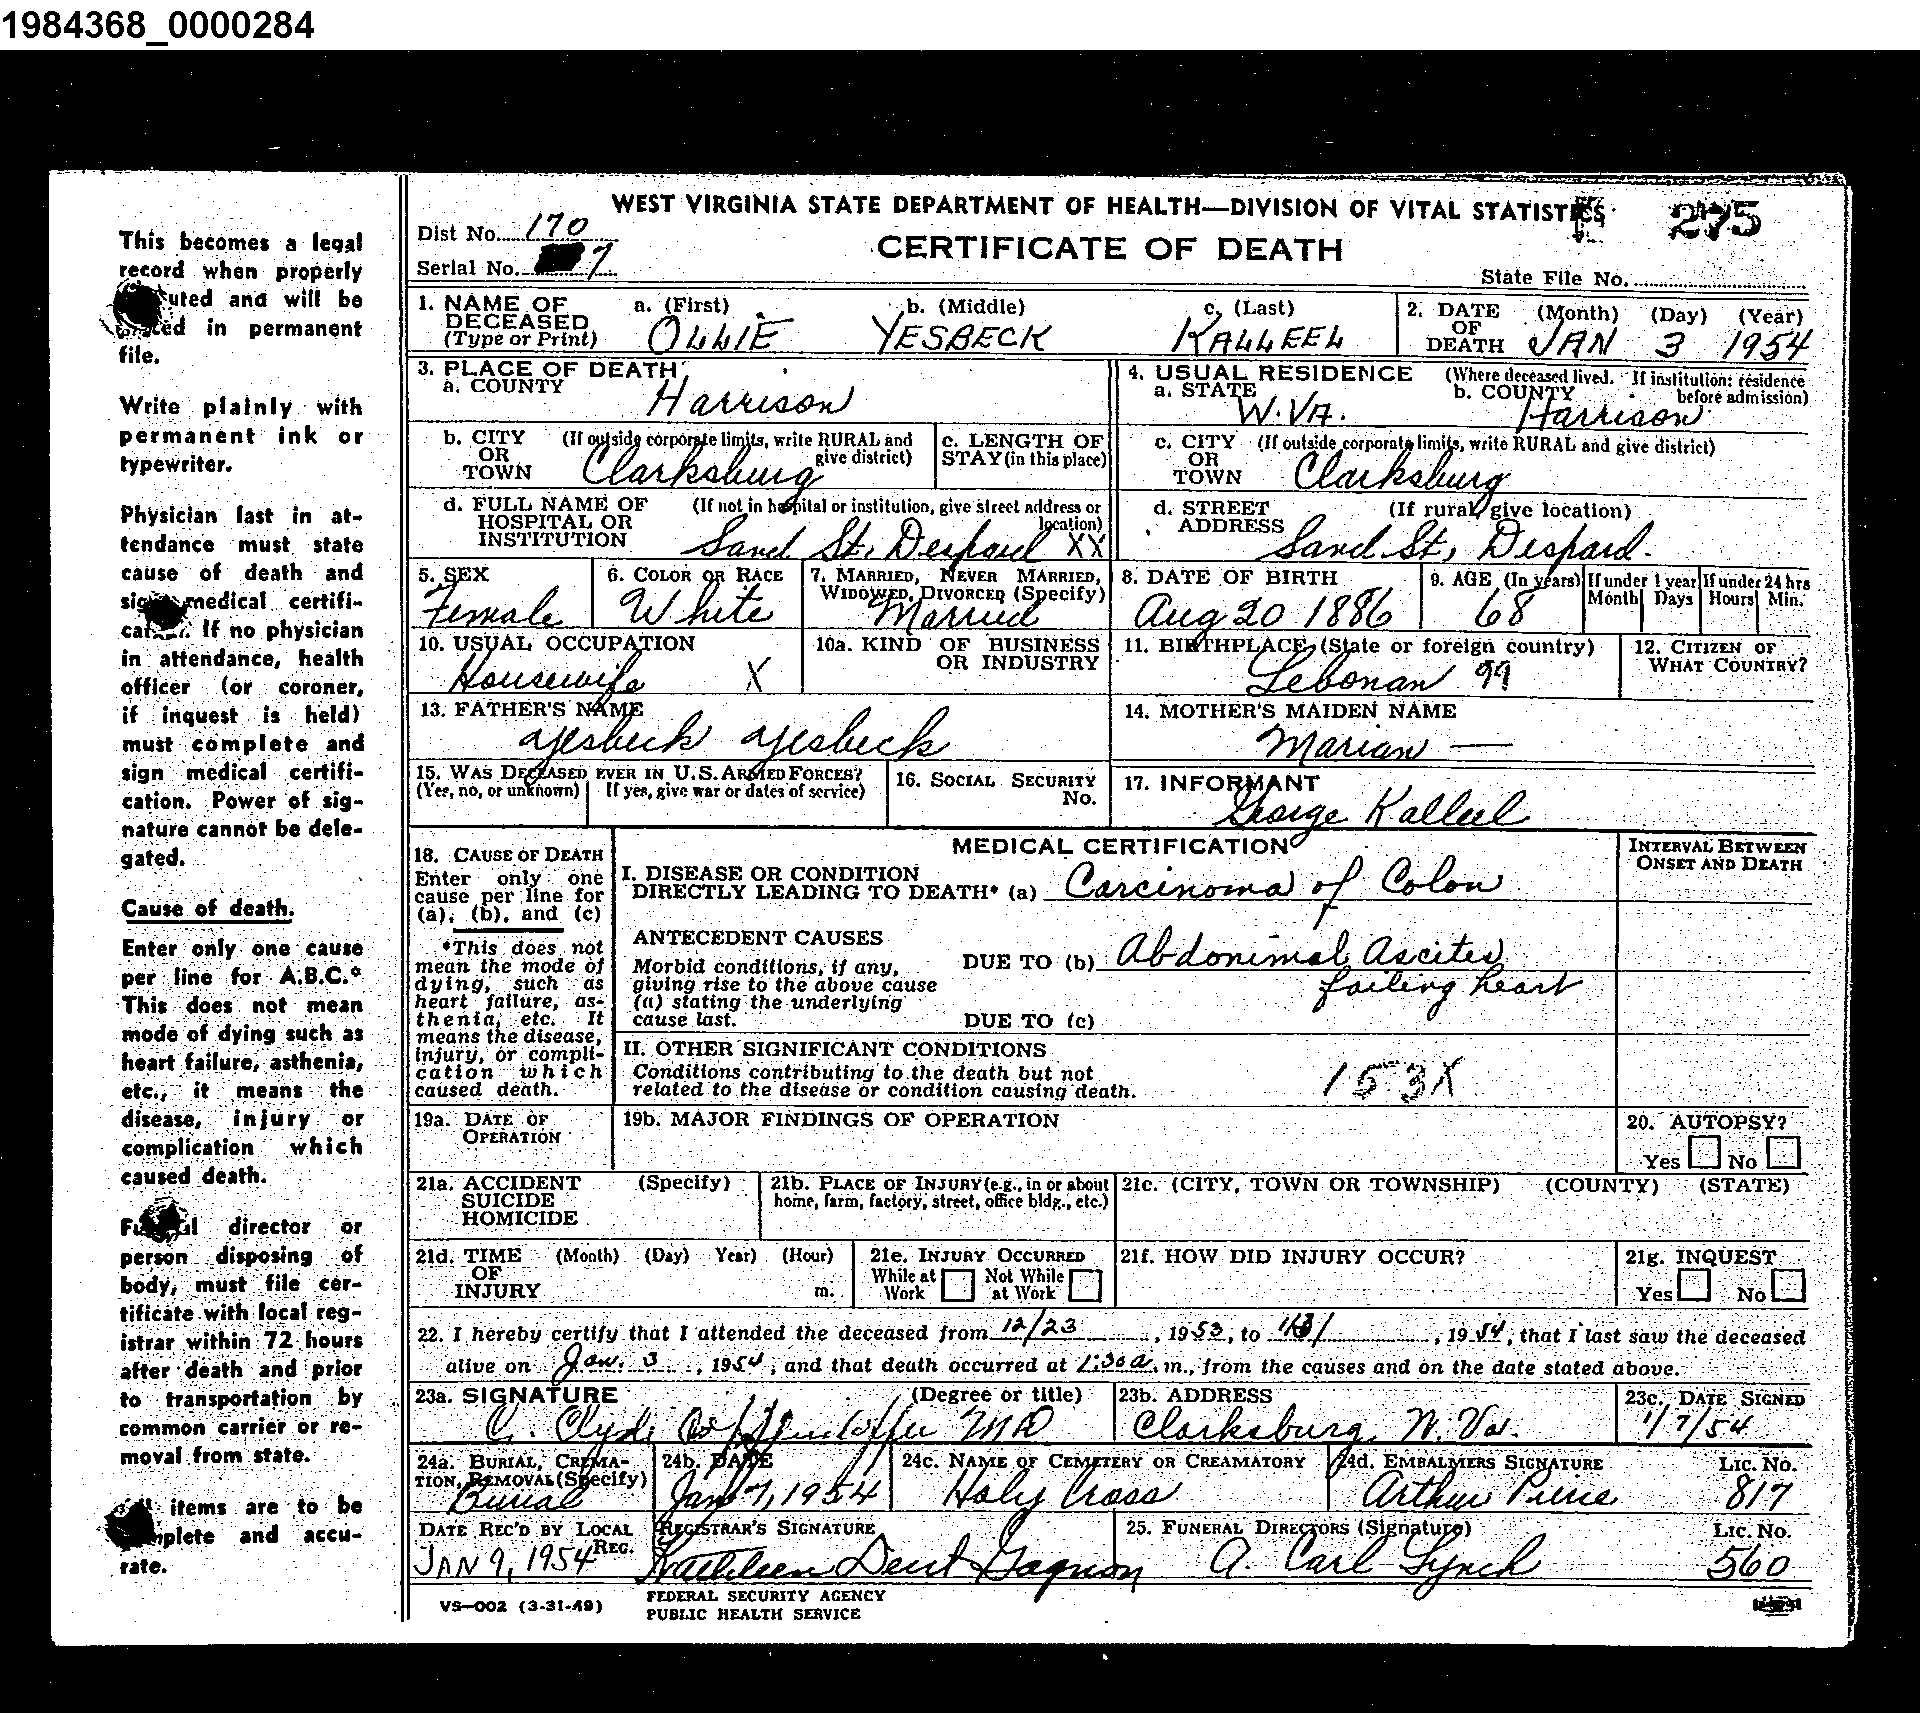 1984368_0000284
WEST VIRGINIA STATE DEPARTMENT OF HEALTH—DIVISION OF VITAL STATISTICS 275
Dist No. 170
CERTIFICATE OF DEATH
Serial No. 7
State File No.
This becomes a legal
record when properly
uted and will be
in permanent
file.
Write plainly with
permanent ink or
typewriter.
Physician last in at-
tendance must state
cause of death and
medical certifi-
If no physician
in attendance, health
officer (or coroner,
if inquest is held)
must complete and
sign medical certifi-
cation. Power of sig-
nature cannot be dele-
gated.
Cause of death.
Enter only one cause
per line for A.B.C.*
This does not mean
mode of dying such as
heart failure, asthenia,
etc., it means the
disease, injury or
complication which
caused death.
director or
person disposing of
body, must file cer-
tificate with local reg-
istrar within 72 hours
after death and prior
to transportation by
common carrier or re-
moval from state.
items are to be
and accu-
rate.
1. NAME OF DECEASED (Type or Print)
a. (First) OLLIE
b. (Middle) YESBECK
c. (Last) KALLEEL
2. DATE OF DEATH (Month) (Day) (Year)
JAN 3 1954
3. PLACE OF DEATH
a. COUNTY Harrison
4. USUAL RESIDENCE (Where deceased lived. If institution: residence before admission)
a. STATE W.VA.
b. COUNTY Harrison
b. CITY OR TOWN (If outside corporate limits, write RURAL and give district)
Clarksburg
c. LENGTH OF STAY (in this place)
c. CITY OR TOWN (If outside corporate limits, write RURAL and give district)
Clarksburg
d. FULL NAME OF HOSPITAL OR INSTITUTION (If not in hospital or institution, give street address or location)
Sand St, Despard XX
d. STREET ADDRESS (If rural, give location)
Sand St, Despard.
5. SEX
Female
6. COLOR OR RACE
White
7. MARRIED, NEVER MARRIED, WIDOWED, DIVORCED (Specify)
Married
8. DATE OF BIRTH
Aug 20 1886
9. AGE (In years)
68
If under 1 year Month Days
If under 24 hrs Hours Min.
10. USUAL OCCUPATION
Housewife X
10a. KIND OF BUSINESS OR INDUSTRY
11. BIRTHPLACE (State or foreign country)
Lebonan 99
12. CITIZEN OF WHAT COUNTRY?
13. FATHER'S NAME
Yesbeck Yesbeck
14. MOTHER'S MAIDEN NAME
Marian —
15. WAS DECEASED EVER IN U.S. ARMED FORCES?
(Yes, no, or unknown) If yes, give war or dates of service)
16. SOCIAL SECURITY No.
17. INFORMANT
George Kalleel
18. CAUSE OF DEATH
Enter only one
cause per line for
(a), (b), and (c)
*This does not
mean the mode of
dying, such as
heart failure, as-
thenia, etc. It
means the disease,
injury, or compli-
cation which
caused death.
MEDICAL CERTIFICATION
INTERVAL BETWEEN ONSET AND DEATH
I. DISEASE OR CONDITION
DIRECTLY LEADING TO DEATH* (a) Carcinoma of Colon
ANTECEDENT CAUSES
Morbid conditions, if any,
giving rise to the above cause
(a) stating the underlying
cause last.
DUE TO (b) Abdonimal Ascites
failing heart
DUE TO (c)
II. OTHER SIGNIFICANT CONDITIONS
Conditions contributing to the death but not
related to the disease or condition causing death.
153X
19a. DATE OF OPERATION
19b. MAJOR FINDINGS OF OPERATION
20. AUTOPSY?
Yes No
21a. ACCIDENT SUICIDE HOMICIDE (Specify)
21b. PLACE OF INJURY (e.g., in or about home, farm, factory, street, office bldg., etc.)
21c. (CITY, TOWN OR TOWNSHIP) (COUNTY) (STATE)
21d. TIME OF INJURY (Month) (Day) Year) (Hour) m.
21e. INJURY OCCURRED
While at Work Not While at Work
21f. HOW DID INJURY OCCUR?
21g. INQUEST
Yes No
22. I hereby certify that I attended the deceased from 12/23, 1953, to , 1954, that I last saw the deceased
alive on Jan. 3, 1954, and that death occurred at 1:30a.m., from the causes and on the date stated above.
23a. SIGNATURE (Degree or title)
C. Clyde MD
23b. ADDRESS
Clarksburg, W. Va.
23c. DATE SIGNED
1/7/54
24a. BURIAL, CREMATION, REMOVAL (Specify)
Burial
24b. DATE
Jan 7, 1954
24c. NAME OF CEMETERY OR CREAMATORY
Holy Cross
24d. EMBALMERS SIGNATURE LIC. NO.
Arthur 817
DATE REC'D BY LOCAL REG.
JAN 9, 1954
REGISTRAR'S SIGNATURE
Kathleen Dent Gagnon
25. FUNERAL DIRECTORS (Signature) LIC. NO.
A. Carl Lynch 560
VS—002 (3-31-49)
FEDERAL SECURITY AGENCY
PUBLIC HEALTH SERVICE